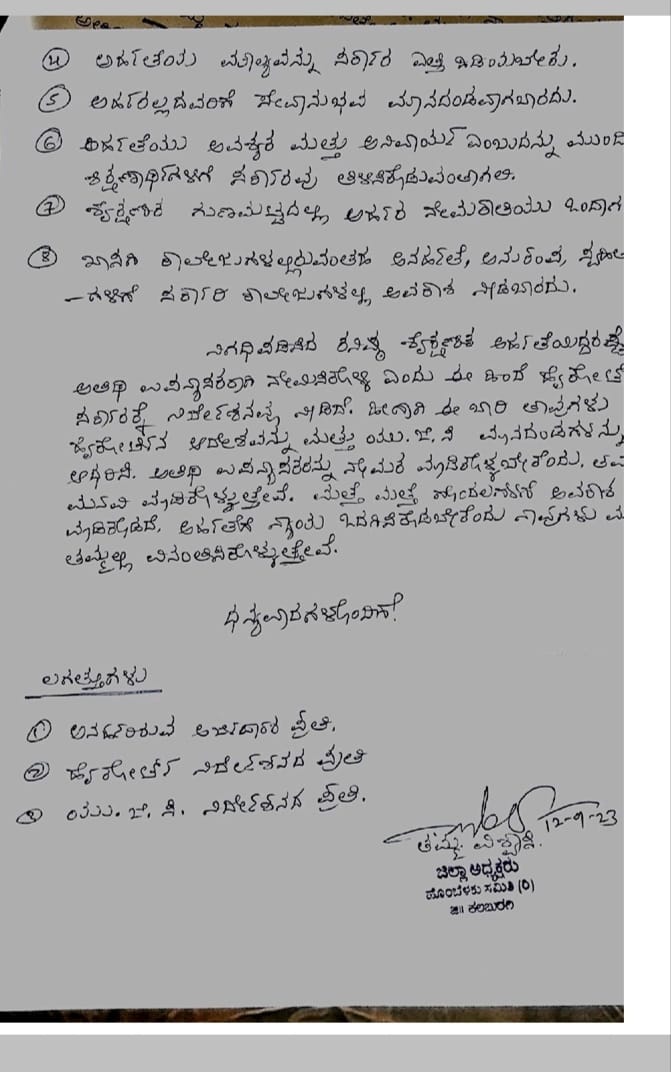 ೪ ಅರ್ಹತೆಯ ಮೌಲ್ಯವನ್ನು ಸರ್ಕಾರ ಎತ್ತಿ ಹಿಡಿಯಬೇಕು.
5 ಅರ್ಹರಲ್ಲದವರಿಗೆ ಸೇವಾನುಭವ ಮಾನದಂಡವಾಗಬಾರದು.
6 ಅರ್ಹತೆಯು ಅವಶ್ಯಕ ಮತ್ತು ಅನಿವಾರ್ಯ ಎಂಬುದನ್ನು ಮುಂದಿ
ಶಿಕ್ಷಣಾರ್ಥಿಗಳಿಗೆ ಸರ್ಕಾರವು ತಿಳಿಸಿಕೊಡುವಂತಾಗಲಿ.
7 ಶೈಕ್ಷಣಿಕ ಗುಣಮಟ್ಟದಲ್ಲಿ ಅರ್ಹರ ನೇಮಕಾತಿಯು ಒಂದಾಗ
8 ಖಾಸಗಿ ಕಾಲೇಜುಗಳಲ್ಲಿರುವಂತಹ ಅನರ್ಹತೆ, ಅನುಕಂಪ,
-ಗಳಿಗೆ ಸರ್ಕಾರಿ ಕಾಲೇಜುಗಳಲ್ಲಿ ಅವಕಾಶ ನೀಡಬಾರದು.
ನಿಗಧಿಪಡಿಸಿದ ಕನಿಷ್ಠ ಶೈಕ್ಷಣಿಕ ಅರ್ಹತೆಯಿದ್ದರಷ್ಟೆ
ಅತಿಥಿ ಉಪನ್ಯಾಸಕರಾಗಿ ನೇಮಿಸಿಕೊಳ್ಳಿ ಎಂದು ಈ ಹಿಂದೆ ಹೈಕೋರ್ಟ್
ಸರ್ಕಾರಕ್ಕೆ ನಿರ್ದೇಶನವನ್ನು ನೀಡಿದೆ. ಹೀಗಾಗಿ ಈ ಬಾರಿ ತಾವುಗಳು
ಹೈಕೋರ್ಟಿನ ಆದೇಶವನ್ನು ಮತ್ತು ಯು. ಜಿ. ಸಿ ಮಾನದಂಡಗಳನ್ನು
ಆಧರಿಸಿ. ಅತಿಥಿ ಉಪನ್ಯಾಸಕರನ್ನು ನೇಮಕ ಮಾಡಿಕೊಳ್ಳಬೇಕೆಂದು, ತಮ
ಮನವಿ ಮಾಡಿಕೊಳ್ಳುತ್ತೇವೆ. ಮತ್ತೆ ಮತ್ತೆ ಗೊಂದಲಗಳಿಗೆ ಅವಕಾಶ
ಮಾಡಿಕೊಡದೆ, ಅರ್ಹತೆಗೆ ನ್ಯಾಯ ಒದಗಿಸಿಕೊಡಬೇಕೆಂದು ನಾವುಗಳು ಮ
ತಮ್ಮಲ್ಲಿ ವಿನಂತಿಸಿಕೊಳ್ಳುತ್ತೇವೆ.
ಧನ್ಯವಾದಗಳೊಂದಿಗೆ!
ಲಗತ್ತುಗಳು
1 ಅನರ್ಹರಿರುವ ಅರ್ಜಿದಾರರ ಪ್ರತಿ.
2 ಹೈಕೋರ್ಟ್ ನಿರ್ದೇಶನದ ಪ್ರತಿ
3 ಯು. ಜಿ. ಸಿ. ನಿರ್ದೇಶನದ ಪ್ರತಿ.
12-9-23
ಜಿಲ್ಲಾ ಅಧ್ಯಕ್ಷರು
ಹೊಂಬೆಳಕು ಸಮಿತಿ (ರಿ)
ಜಿ॥ ಕಲಬುರಗಿ